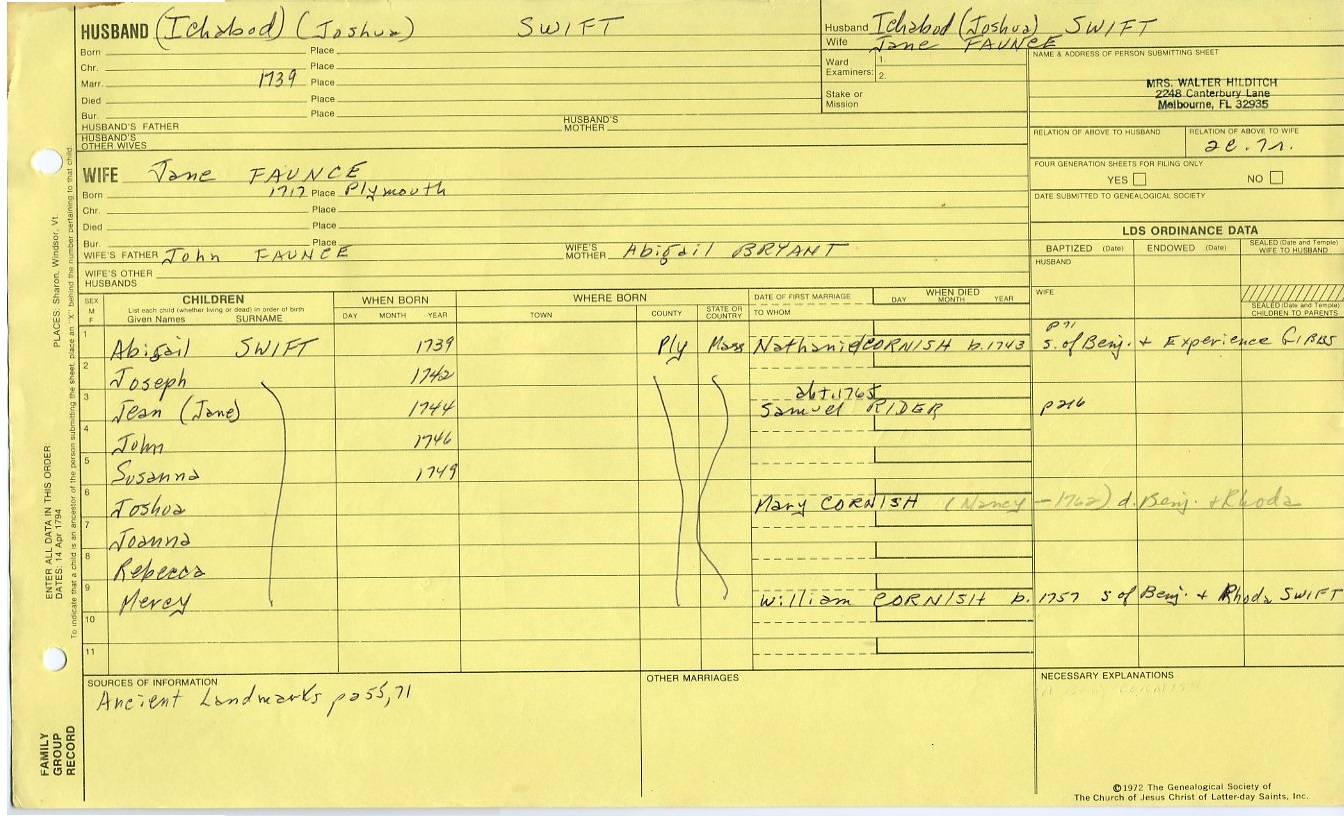 HUSBAND (Ichabod) (Joshua) SWIFT
Born Place
Chr. Place
Marr. 1739 Place
Died Place
Bur. Place
HUSBAND'S FATHER HUSBAND'S MOTHER
HUSBAND'S OTHER WIVES
Husband Ichabod (Joshua) SWIFT
Wife Jane FAUNCE
Ward Examiners: 1. 2.
Stake or Mission
NAME & ADDRESS OF PERSON SUBMITTING SHEET
MRS. WALTER HILDITCH
2248 Canterbury Lane
Melbourne, FL 32935
RELATION OF ABOVE TO HUSBAND RELATION OF ABOVE TO WIFE
FOUR GENERATION SHEETS FOR FILING ONLY
YES NO
DATE SUBMITTED TO GENEALOGICAL SOCIETY
WIFE Jane FAUNCE
Born 1717 Place Plymouth
Chr. Place
Died Place
Bur. Place
WIFE'S FATHER John FAUNCE WIFE'S MOTHER Abigail BRYANT
WIFE'S OTHER HUSBANDS
LDS ORDINANCE DATA
BAPTIZED (Date) ENDOWED (Date) SEALED (Date and Temple) WIFE TO HUSBAND
HUSBAND
WIFE
SEALED (Date and Temple) CHILDREN TO PARENTS
SEX M F CHILDREN WHEN BORN WHERE BORN DATE OF FIRST MARRIAGE WHEN DIED
List each child (whether living or dead) in order of birth
Given Names SURNAME DAY MONTH YEAR TOWN COUNTY STATE OR COUNTRY TO WHOM DAY MONTH YEAR
p71
1 Abigail SWIFT 1739 Ply Mass Nathaniel CORNISH b. 1743 s. of Benj. + Experience GIBBS
2 Joseph 1742
abt. 1765
3 Jean (Jane) 1744 Samuel RIDER p216
4 John 1746
5 Susanna 1749
6 Joshua Mary CORNISH (Nancy - 1762) d. Benj. + Rhoda
7 Joanna
8 Rebecca
9 Mercy William CORNISH b. 1757 s of Benj. + Rhoda SWIFT
10
11
SOURCES OF INFORMATION
Ancient Landmarks p255, 71
OTHER MARRIAGES
NECESSARY EXPLANATIONS
©1972 The Genealogical Society of
The Church of Jesus Christ of Latter-day Saints, Inc.
PLACES: Sharon, Windsor, Vt.
To indicate that a child is an ancestor of the person submitting the sheet, place an "X" behind the number pertaining to that child.
ENTER ALL DATA IN THIS ORDER:
DATES: 14 Apr 1794
FAMILY
GROUP
RECORD